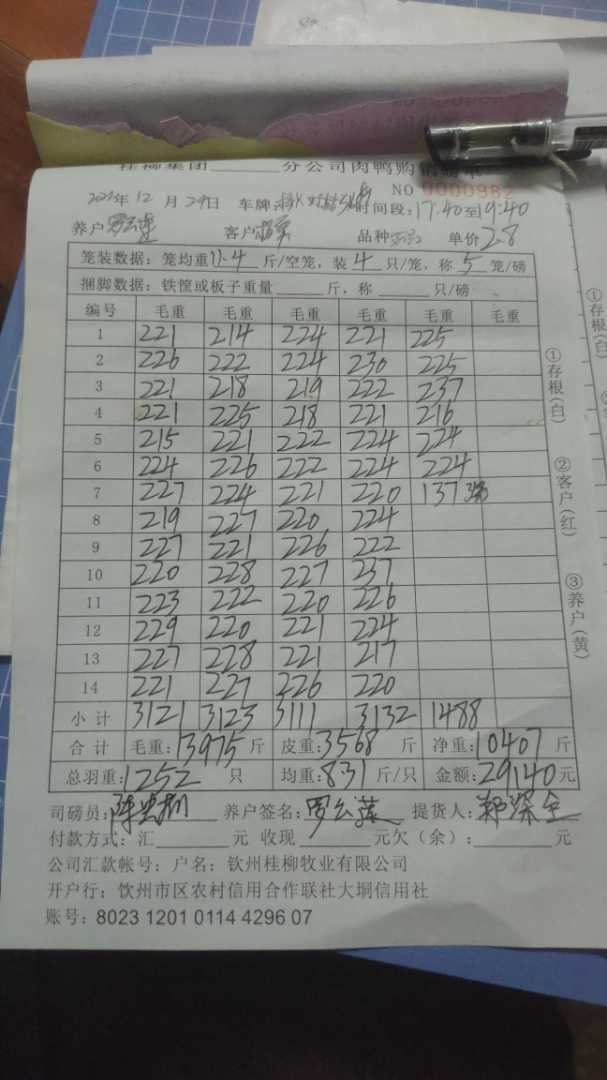 桂柳集团 分公司肉鸭购销磅单
NO 0000982
12月29日 车牌: 时间段:17:40至9:40
养户 客户 品种 单价2.8
笼装数据:笼均重11.4斤/空笼,装4只/笼,称5笼/磅
捆脚数据:铁筐或板子重量 斤,称 只/磅
编号 毛重 毛重 毛重 毛重 毛重 毛重
1 221 214 224 221 225
2 226 222 224 230 225
3 221 218 219 222 237
4 221 225 218 221 216
5 215 221 222 224 224
6 224 226 222 224 224
7 227 224 221 220 137 3笼
8 219 227 220 224
9 227 221 226 222
10 220 228 227 237
11 223 222 220 226
12 229 220 221 224
13 227 228 221 217
14 221 227 226 220
小计 3121 3123 3111 3132 1488
合计 毛重:13975斤 皮重:3568斤 净重:10407斤
总羽重:1252只 均重:831斤/只 金额:29140元
司磅员: 养户签名:罗公莲 提货人:郑深全
付款方式:汇 元 收现 元欠(余): 元
公司汇款帐号:户名:钦州桂柳牧业有限公司
开户行:钦州市区农村信用合作联社大垌信用社
账号:8023 1201 0114 4296 07
①存根(白)
②客户(红)
③养户(黄)
①存根(白)